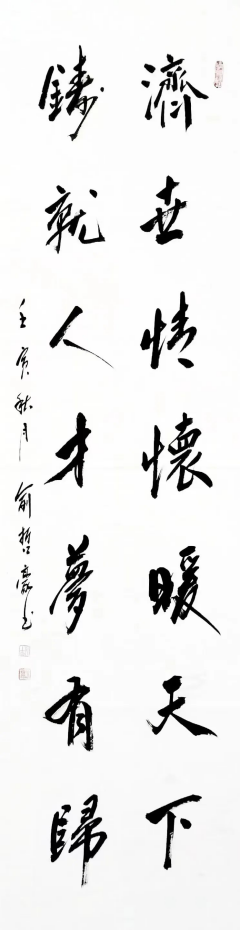 濟世情懷暖天下
鑄就人才夢有歸
壬寅秋月 俞哲豪书